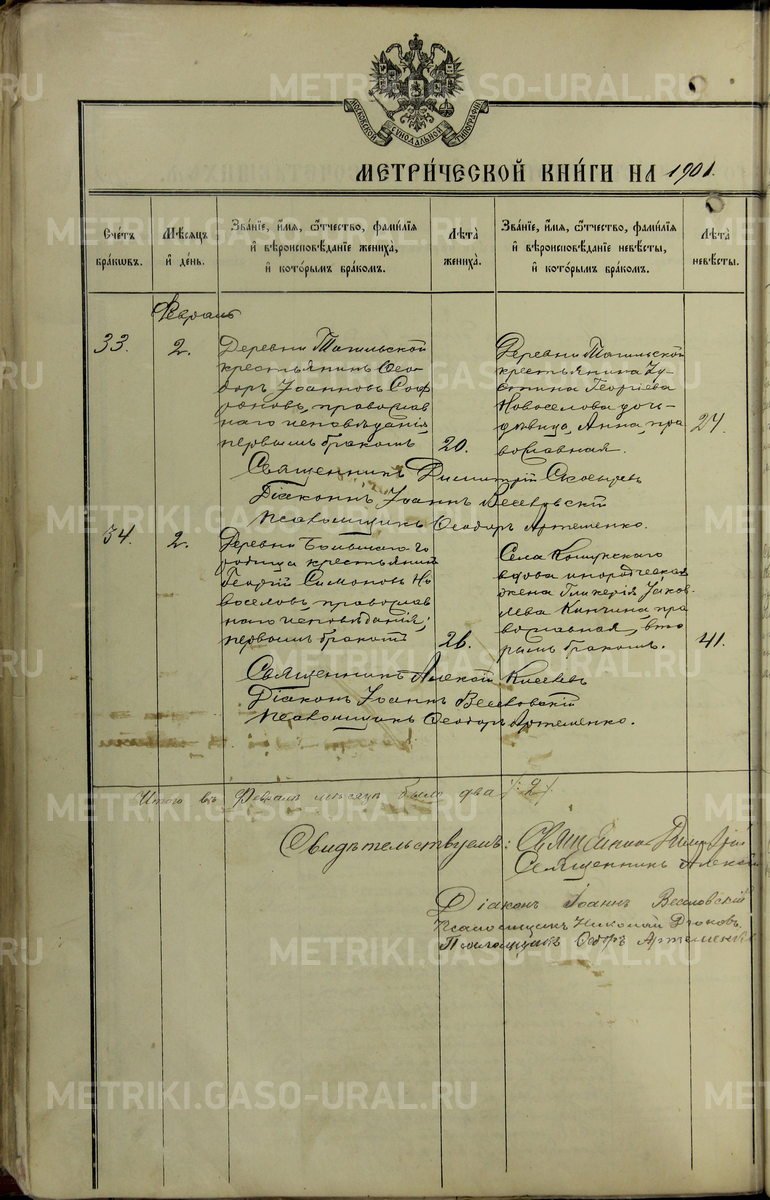 МОСКОВСКОЙ СѴНОДАЛЬНОЙ ТИПОГРАФІИ
МЕТРИ́ЧЕСКОЙ КНИ́ГИ НА 1901.
Сче́тъ бра́кѡвъ.
Мѣ́сяцъ и҆ де́нь.
Зва́нїе, и҆́мя, ѻ҆́тчество, фами́лїя
и҆ вѣроисповѣ́данїе жениха̀,
и҆ кото́рымъ бра́комъ.
Лѣ́та жениха̀.
Зва́нїе, и҆́мя, ѻ҆́тчество, фами́лїя
и҆ вѣроисповѣ́данїе невѣ́сты,
и҆ кото́рымъ бра́комъ.
Лѣ́та невѣ́сты.
Февраль
33.
2.
Деревни Тагильской
крестьянинъ Ѳео-
доръ Іоанновъ Соф
роновъ, православ
наго исповѣданія,
первымъ бракомъ
20.
Деревни Тагильской
крестьянина Іу-
стина Георгіева
Новоселова доч-
дѣвица, Анна, пра
вославная.
24.
Священникъ Димитрій
Діаконъ Іоаннъ Веселовскій
Псаломщикъ Ѳеодоръ Артеменко.
34.
2.
Деревни Большаго Го
родища крестьянинъ
Георгій Симоновъ Но
воселовъ, православ
наго исповѣданія,
первымъ бракомъ
26.
Села Кошукскаго
вдова инородческая
жена Гликерія Іаков
лева Кинчина, пра
вославная, вто
рымъ бракомъ.
41.
Священникъ Алексій Киселевъ
Діаконъ Іоаннъ Веселовскій
Псаломщикъ Ѳеодоръ Артеменко.
Итого въ Февралѣ мѣсяцѣ было два /2/
Свидѣтельствуемъ: Священникъ Димитрій
Священникъ Алексій
Діаконъ Іоаннъ Веселовскій
Псаломщикъ Николай
Псаломщикъ Ѳеодоръ Артеменко
METRIKI.GASO-URAL.RU